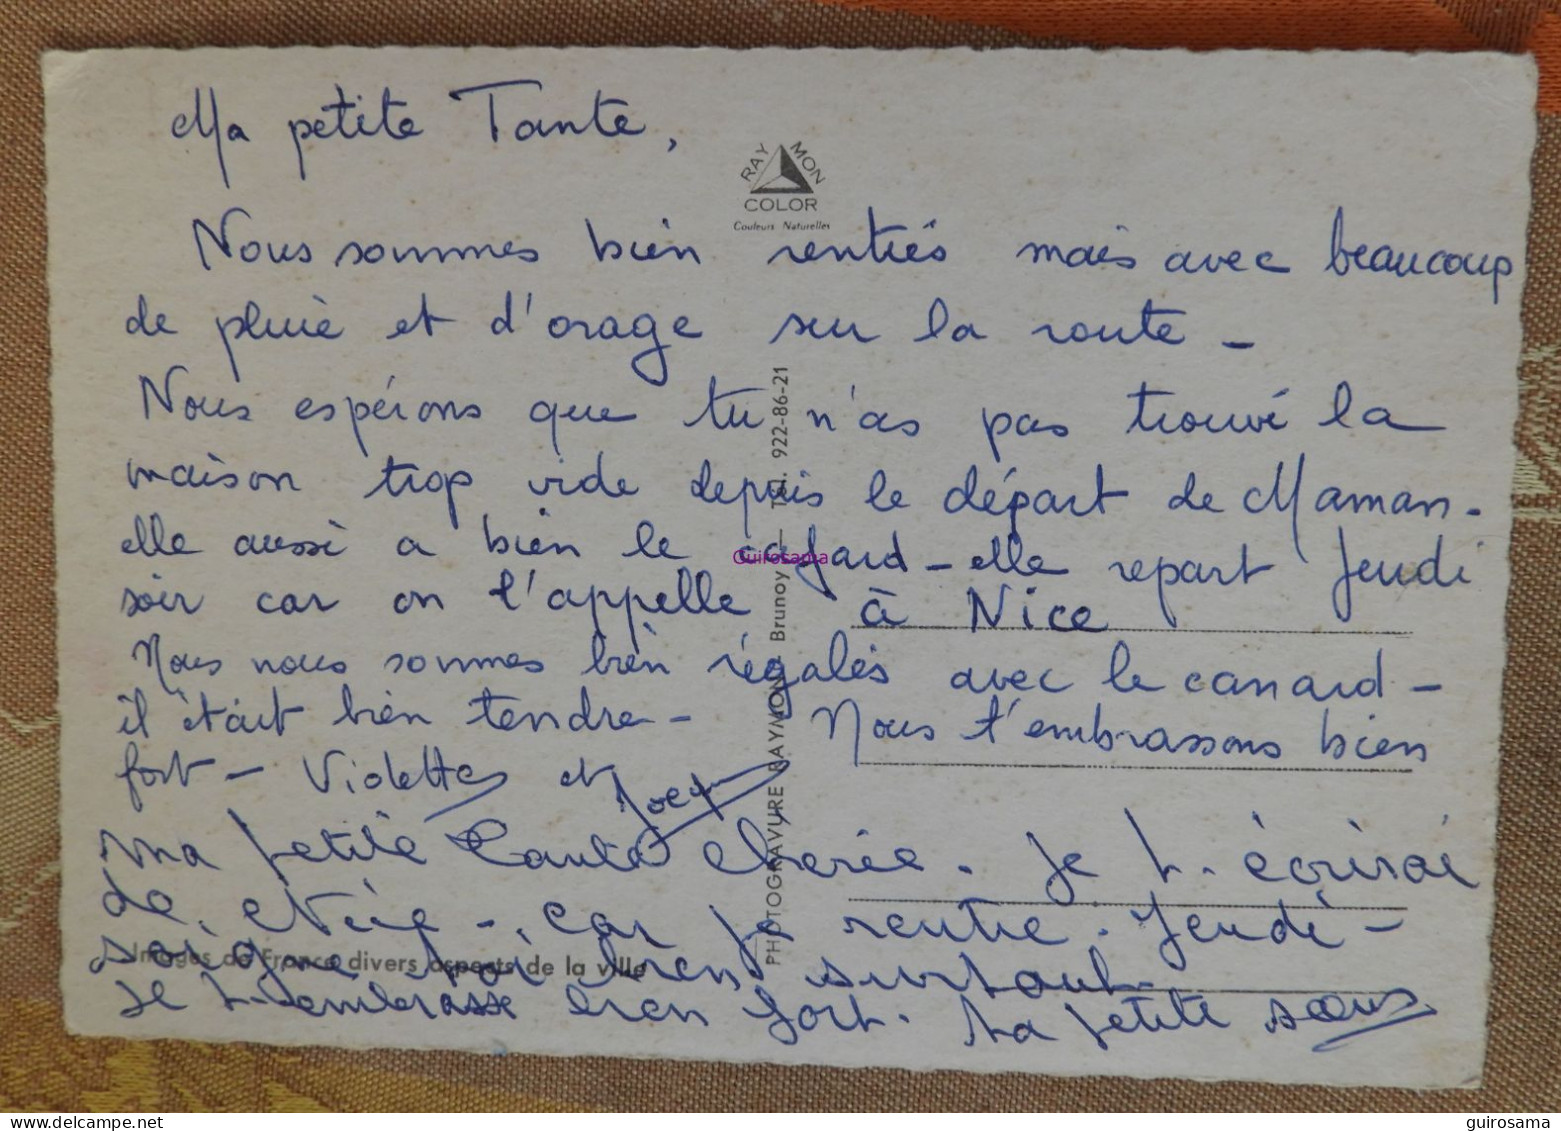 Ma petite Tante,
RAYMON
COLOR
Couleurs Naturelles
Nous sommes bien rentrés mais avec beaucoup
de pluie et d'orage sur la route _
Nous espérons que tu n'as pas trouvé la
maison trop vide depuis le départ de Maman.
elle aussi a bien le cafard _ elle repart Jeudi
soir car on l'appelle à Nice
Nous nous sommes bien régalés avec le canard _
il était bien tendre _ Nous t'embrassons bien
fort _ Violette et
Ma petite chérie. Je t. écrirai
de Nice _. car je rentre. Jeudi _
soigne toi bien surtout.
Je t. embrasse bien fort. Ta petite soeur
Images de France divers aspects de la ville
PHOTOGRAVURE RAYMON _ Brunoy _ Tél. 922-86-21
Guirosama
guirosama